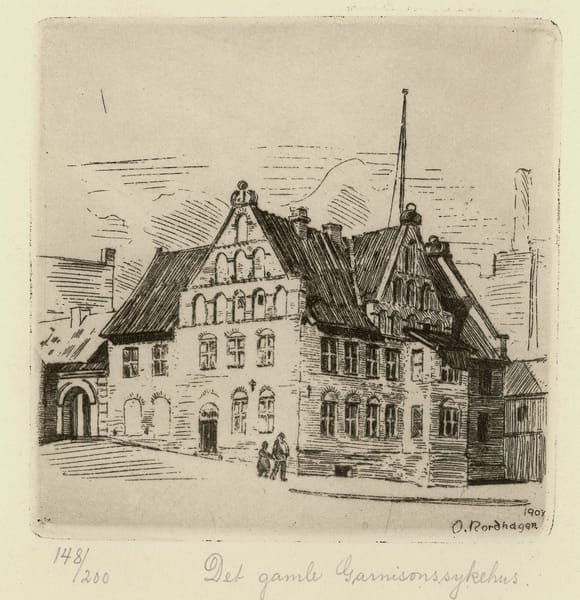 O. Nordhagen
148/
/200
Det gamle Garnisonssykehus.